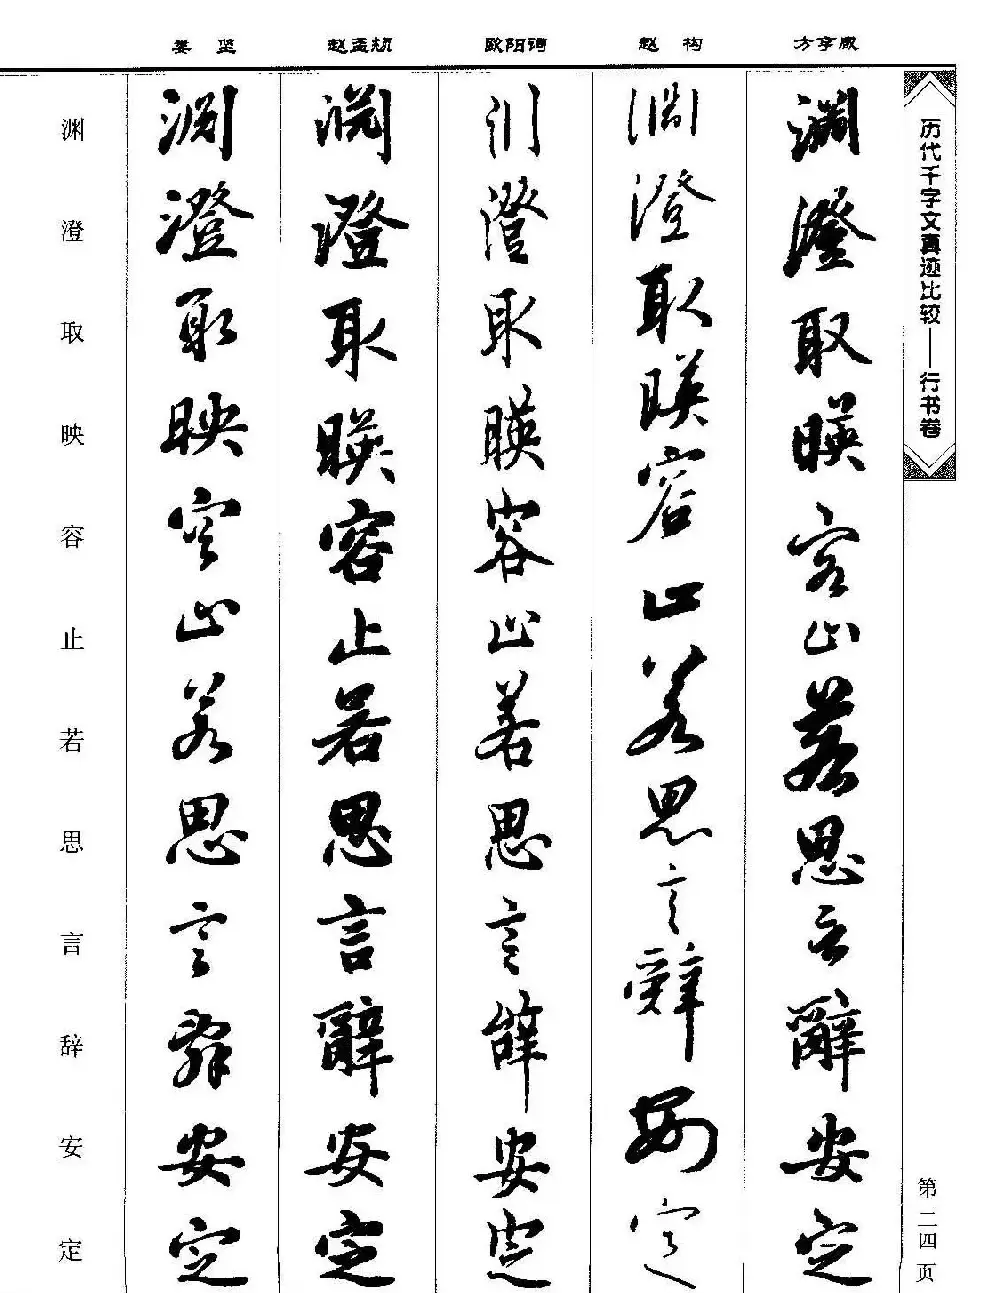 历代千字文真迹比较——行书卷
第二四页
方亨咸
淵澄取暎容止若思言辭安定
赵构
淵澄取暎容止若思言辭安定
欧阳询
川澄取暎容止若思言辭安定
赵孟頫
淵澄取暎容止若思言辭安定
娄坚
淵澄取映容止若思言辭安定
渊澄取映容止若思言辞安定